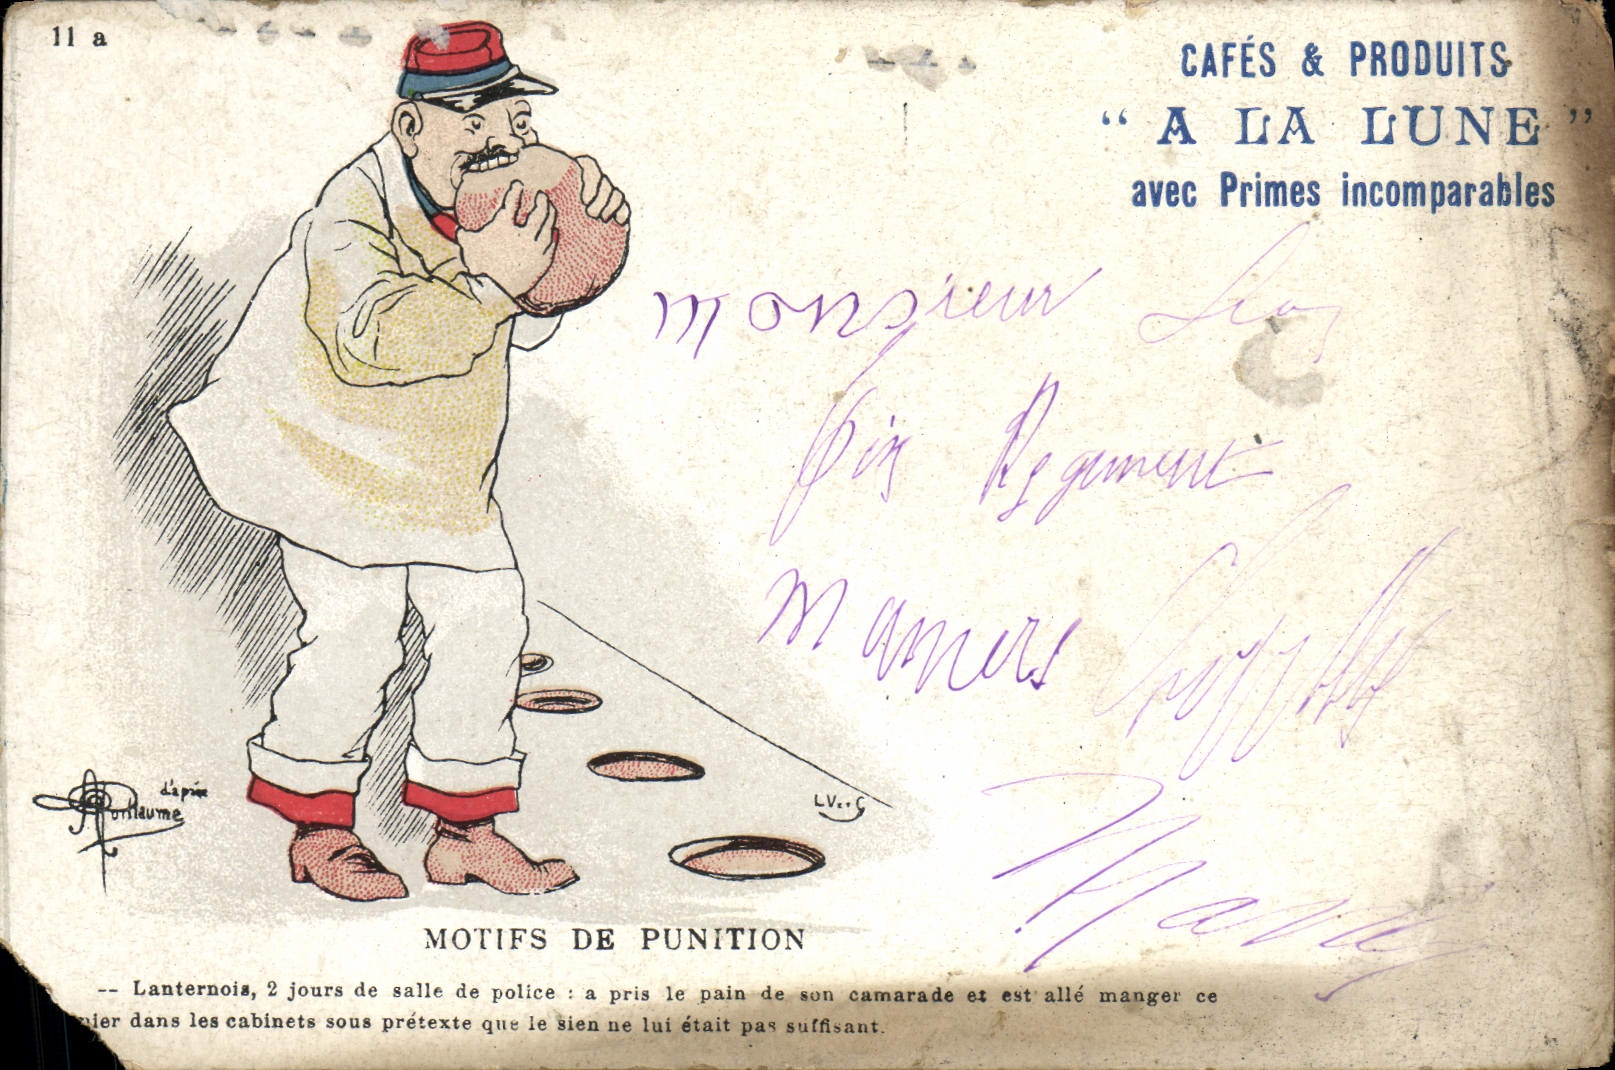 11 a
CAFÉS & PRODUITS
“ A LA LUNE ”
avec Primes incomparables
Monsieur
Regiment
Mamers
d'après
Guillaume
MOTIFS DE PUNITION
-- Lanternois, 2 jours de salle de police : a pris le pain de son camarade et est allé manger ce
nier dans les cabinets sous prétexte que le sien ne lui était pas suffisant.